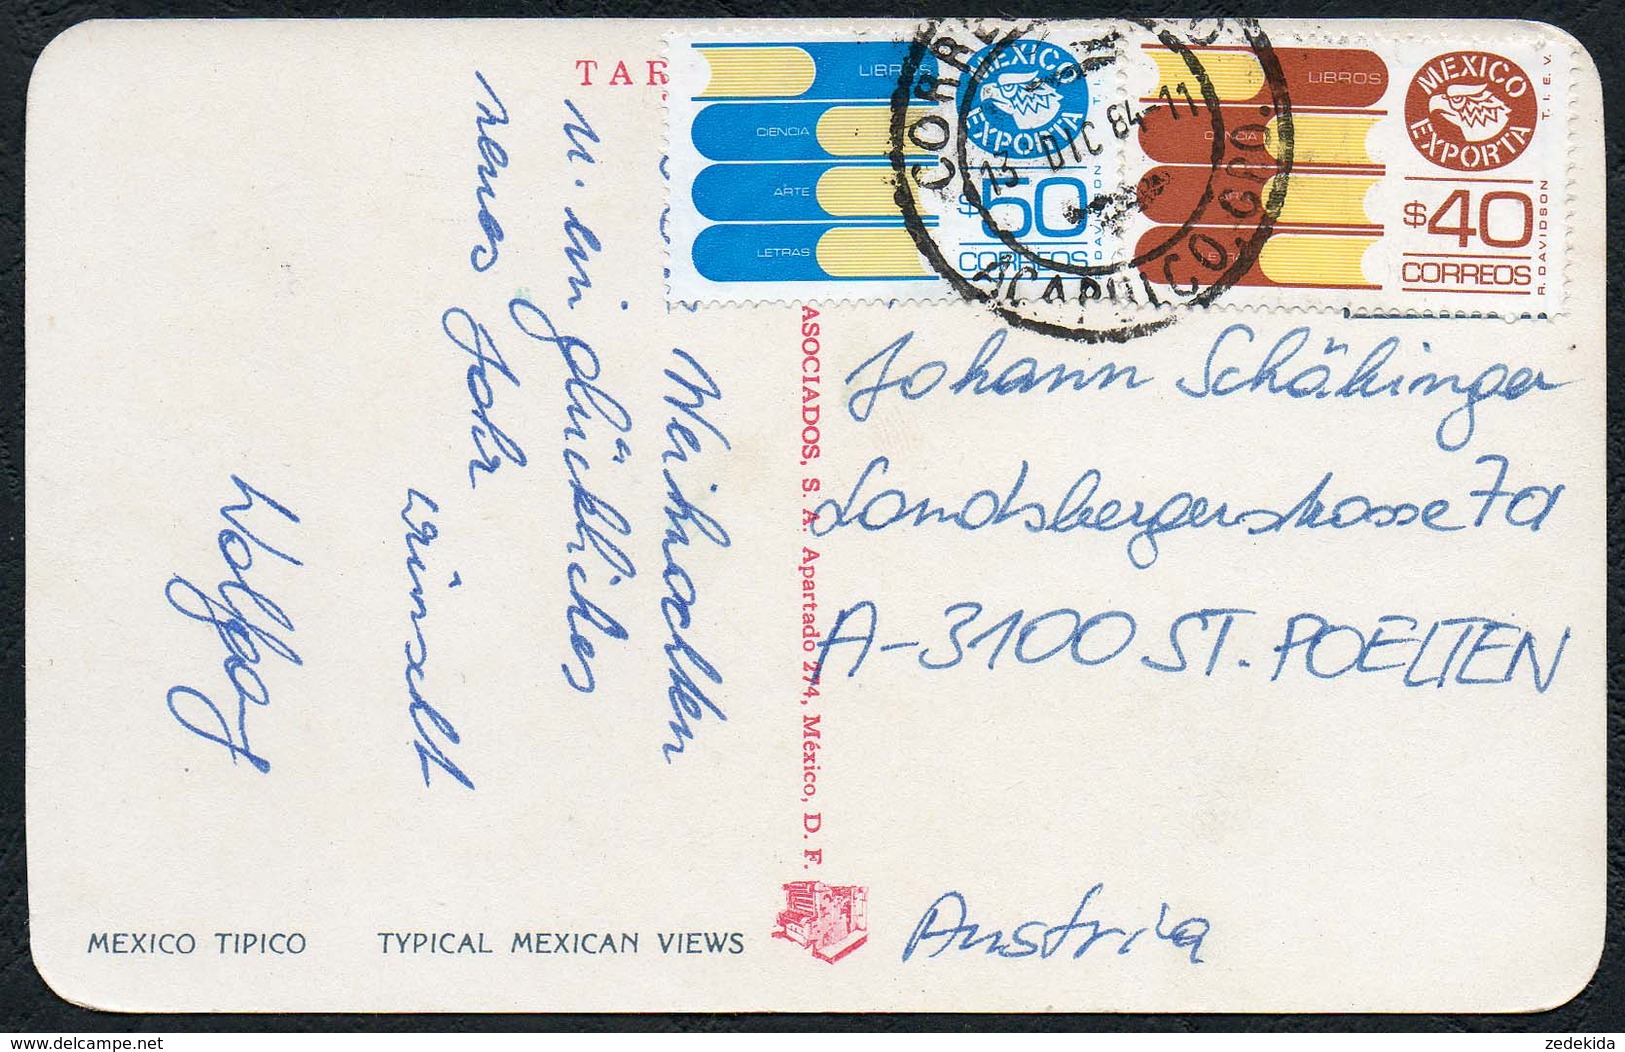 TAR
Weihnachten
u. ein glückliches
neues Jahr
wünscht
Wolfgang
MEXICO TIPICO
TYPICAL MEXICAN VIEWS
ASOCIADOS, S. A. Apartado 274, México, D. F.
LIBROS
CIENCIA
ARTE
LETRAS
MEXICO
EXPORTA
T.I.E.V.
$50
CORREOS
R. DAVIDSON
LIBROS
MEXICO
EXPORTA
T.I.E.V.
$40
CORREOS
R. DAVIDSON
13 DIC 84-11
ACAPULCO, GRO.
Johann Schäbinger
Landsbergerstrasse 7a
A-3100 ST. POELTEN
Austria
zedekida